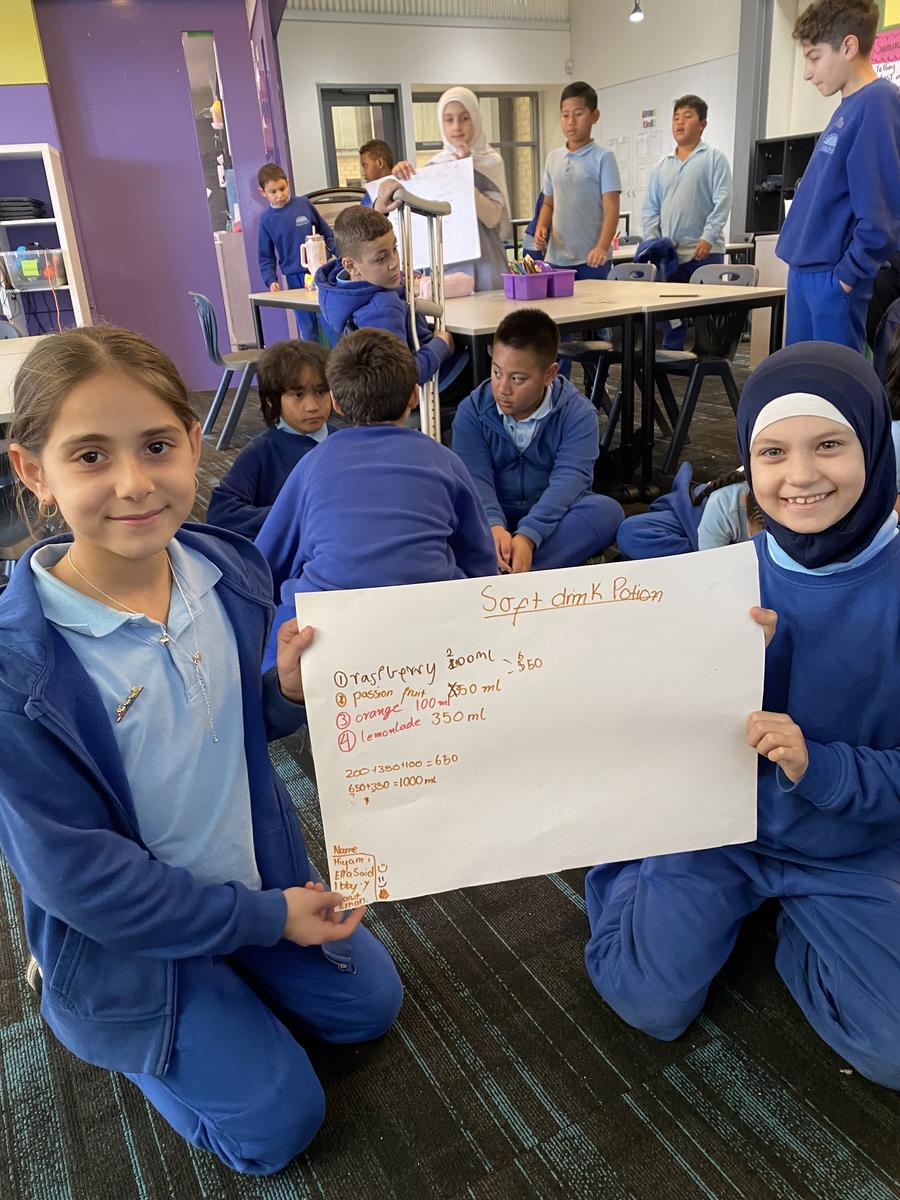 Soft drink Potion
① raspberry 200ml
650
② passion fruit 350 ml
③ orange 100 ml
④ lemonlade 350 ml
200 +350+100 = 650
650+350 = 1000 ml
Name
Hiyam
Ella Said
Ibby.Y
Eman
Summ